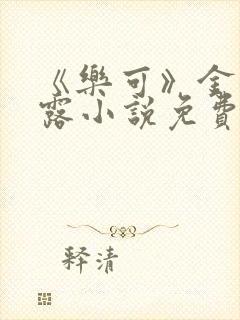 《樂可》金
露小說免費
释清